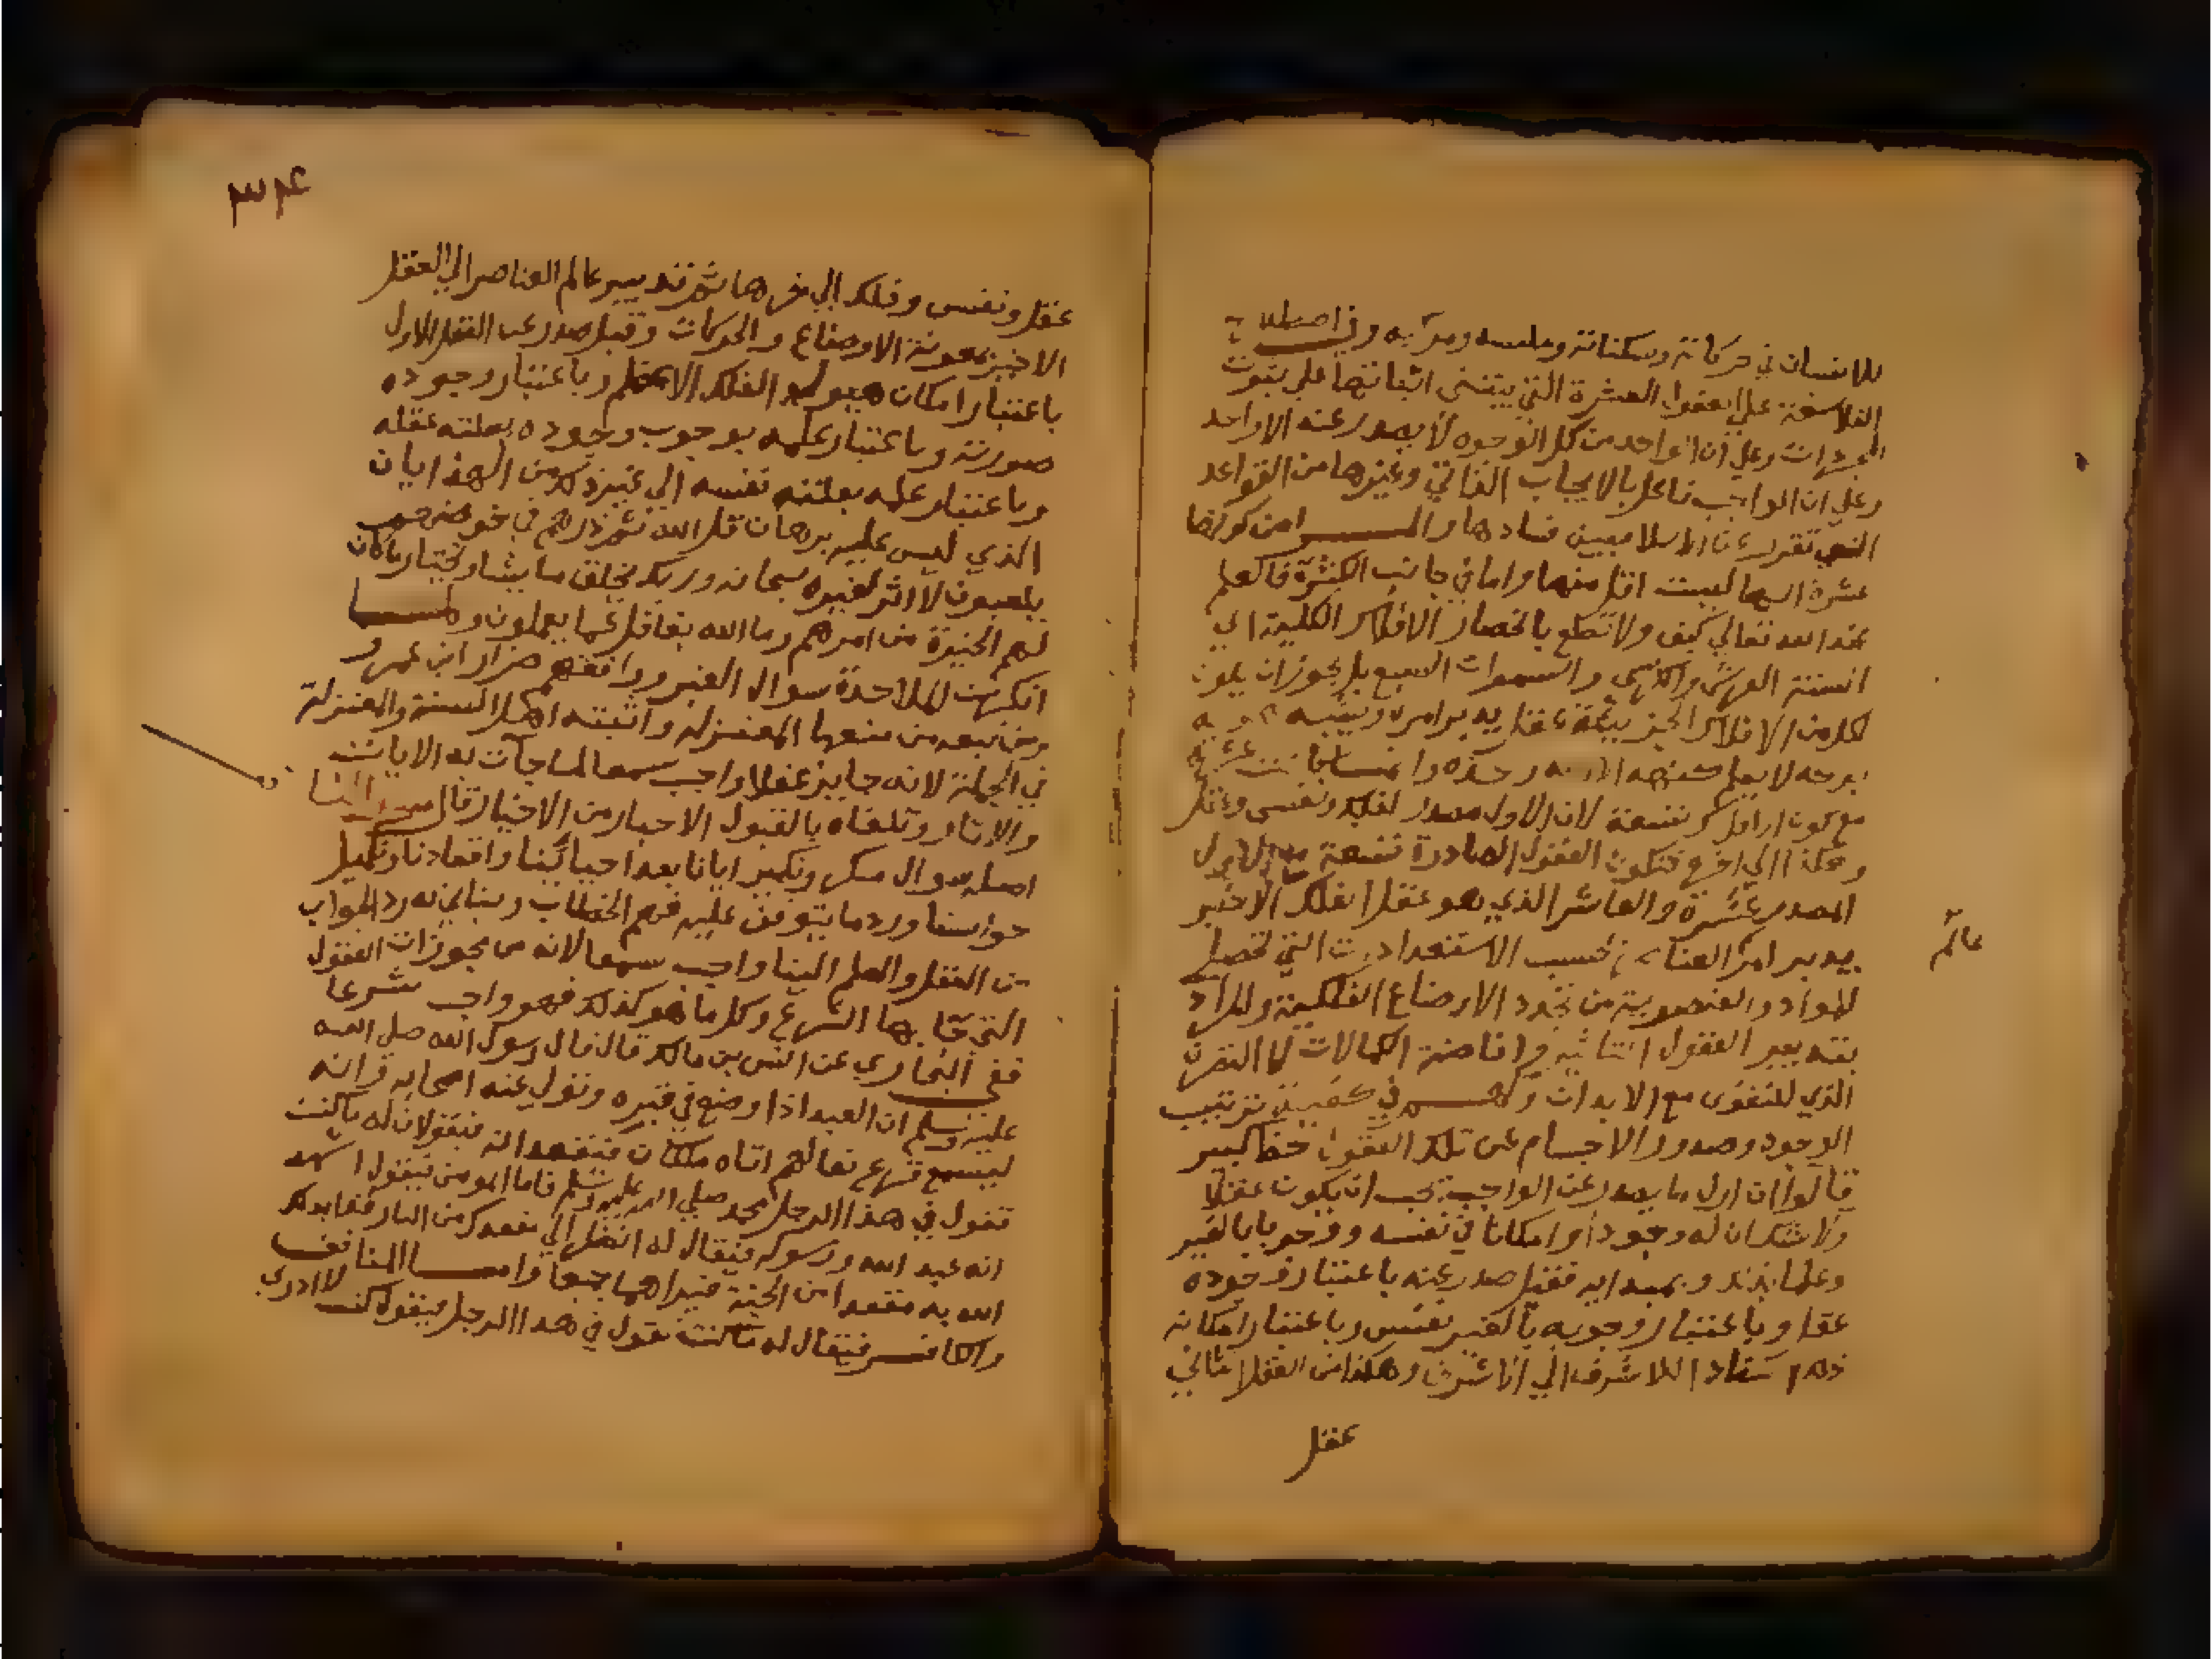 للانسان في حركاته وسكناته وملبسه ومركبه وفي اصطلاح
الفلاسفة علي العقول العشرة التي يبتنى اثباتها علي ثبوت
وعلي ان الواحد من كل الوجوه لا يصدر عنه الا واحد
وعلي ان الواجب فاعل بالايجاب الذاتي وغيرها من القواعد
التي تقرر عنا الاسلاميين فسادها والمـــراد من كونها
عشرة انها ليست اقل منها واما في جانب الكثرة فالعلم
عند الله تعالي كيف ولا قطع بانحصار الافلاك الكلية الي
التسعة العرش والكرسي والسموات السبع بل يجوز ان يكون
لكل من الافلاك الجزيية عقل يدبر امره
بوجه لا يعلم الا الله وحده وانما كانت عشرة
مع كون الافلاك تسعة لان الاول مصدر لفلك ونفس وعقل
وهكذا الي اخره فتكون العقول الصادرة تسعة مع الاول
المصدر عشرة والعاشر الذي هو عقل الفلك الاخير
يدبر امر العناصر بحسب الاستعدادات التي تحصل
للمواد والعنصرية من تجدد الاوضاع الفلكية والمراد
بتدبير العقول التاثير وافاضة الكمالات لا التصرف
الذي للنفوس مع الابدان ولهـــم في كيفية ترتيب
الوجود وصدور الاجسام عن تلك العقول خفا كبير
قالوا ان اول ما يصدر عن الواجب يجب ان يكون عقلا
ولا شك ان له وجودا وامكانا في نفسه ووجوبا بالغير
وعلما بذلك وبمبدايه فقيل صدر عنه باعتبار وجوده
عقل وباعتبار وجوبه بالغير نفس وباعتبار امكانه
اسنادا للاشرف الي الاشرف وهكذا من العقل الثاني
عقل
عالم
٣٤
عقل ونفس وفلك الي اخرها ثم تدبير عالم العناصر الي العقل
الاخير بمعونة الاوضاع والحركات وقيل صدر عن العقل الاول
باعتبار امكان هيولي الفلك الاعظم وباعتبار وجوده
صورته وباعتبار علمه بوجوب وجوده بعلته عقله
وباعتبار علمه بعلته نفسه الي غير ذلك من الهذايان
الذي ليس عليه برهان قل الله ثم ذرهم في خوضهم
يلعبون لا اثر لغيره سبحانه وربك يخلق ما يشا ويختار ما كان
لهم الخيرة من امرهم وما الله بغافل عما يعملون ولمـــا
انكرت الملاحدة سوال القبر ووافقهم ضرار ابن عمرو
ومن تبعه من متعها المعتزله واثبته اهل السنة والمعتزلة
في الجملة لانه جايز عقلا واجب سمعا لما جآت به الايات
والاثار وتلقاه بالقبول الاحبار من الاخيار قال
اصله سوال منكر ونكير ايانا بعد احيائنا واقعادنا وتكميل
حواسنا ورد ما يتوقف عليه فهم الخطاب ويتاتي به رد الجواب
من العقل والعلم الينا واجب سمعا لانه من مجوزات العقول
التي جا بها الشرع وكل ما هو كذلك فهو واجب شرعا
ففي البخاري عن انس بن مالك قال قال رسول الله صلي الله
عليه وسلم ان العبد اذا وضع في قبره وتولي عنه اصحابه وانه
ليسمع قرع نعالهم اتاه ملكان فيقعدانه فيقولان له ما كنت
تقول في هذا الرجل محمد صلي الله عليه وسلم فاما المومن فيقول اشهد
انه عبد الله ورسوله فيقال له انظر الي مقعدك من النار قد ابدلك
الله به مقعدا من الجنة فيراهما جميعا وامـــا المنافق
والكافـــر فيقال له ما كنت تقول في هذا الرجل فيقول كنت لا ادري